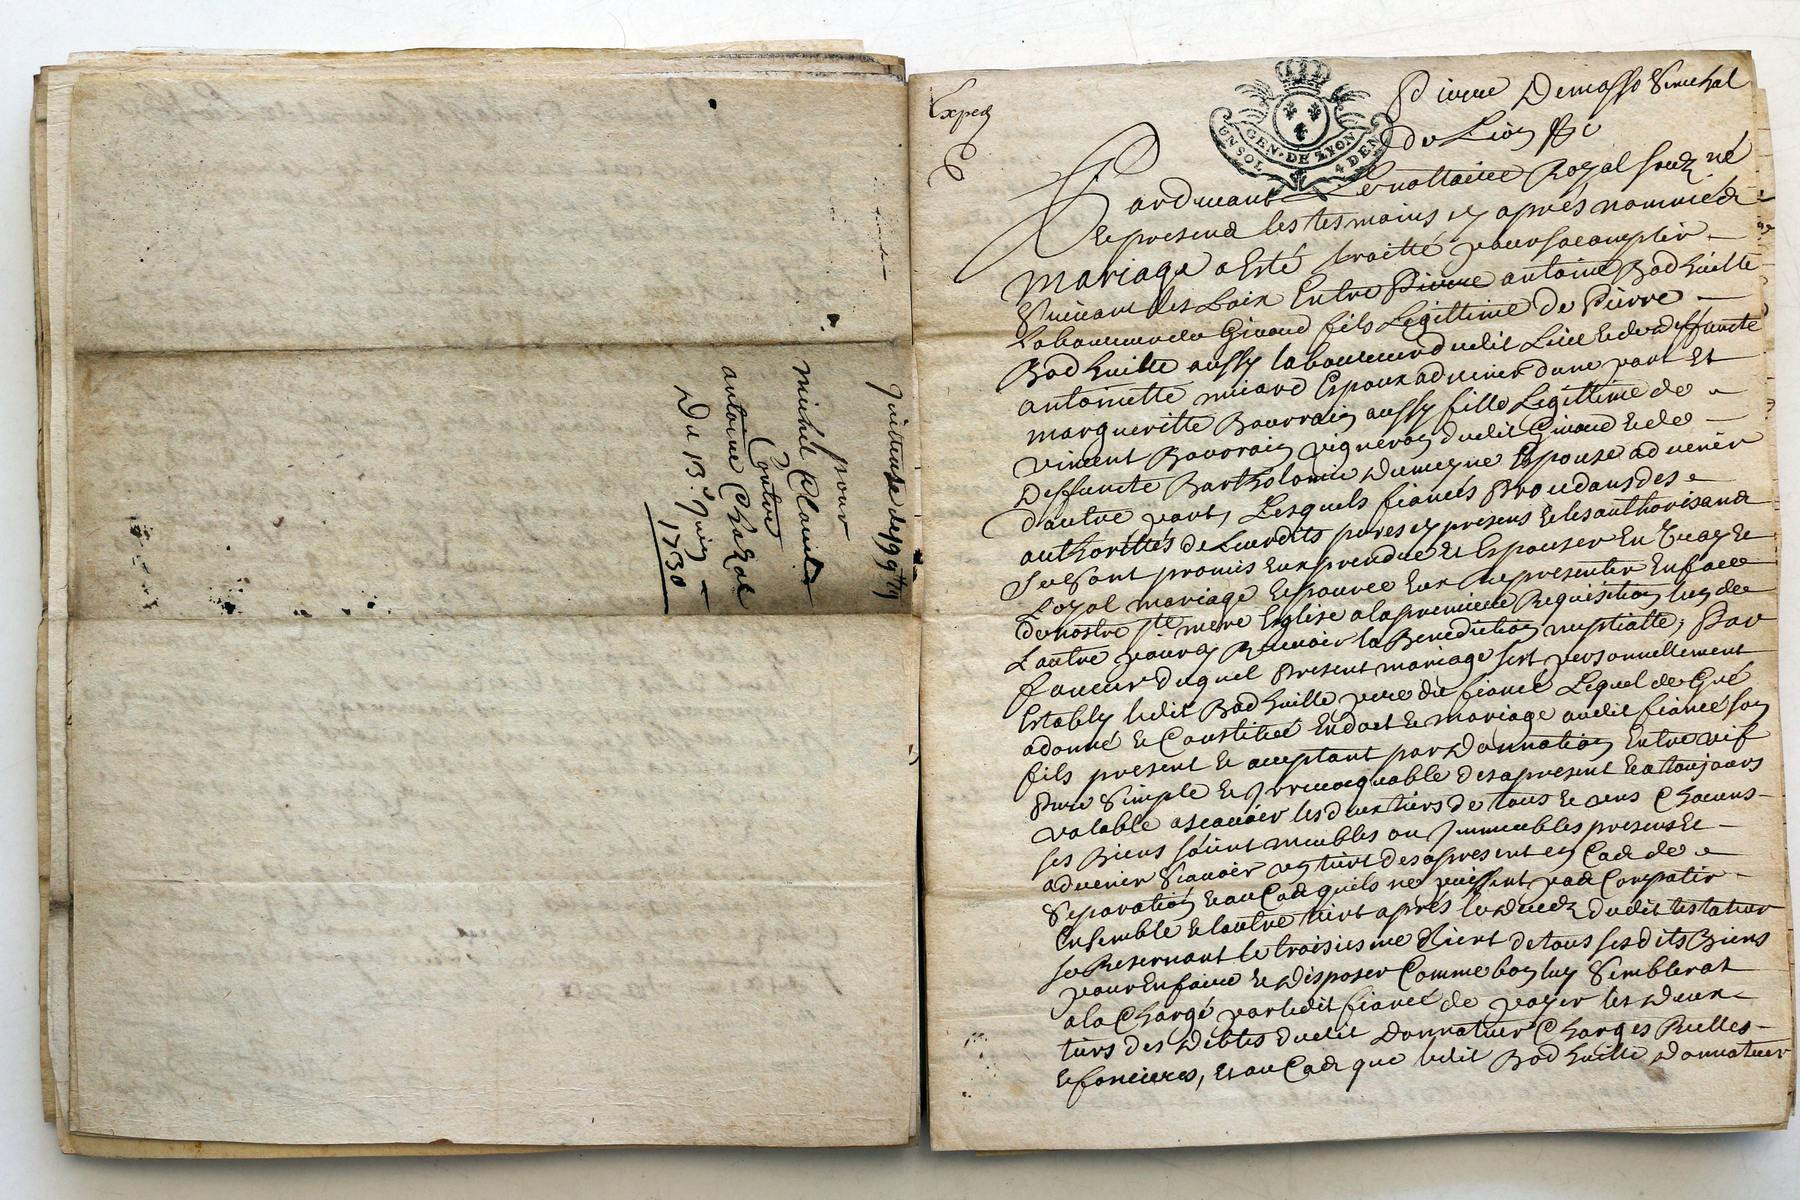 Quittance de 99 ₶
pour
Michel
Contre
antoine Chazal
Du 13e Juin
1730
Exped
GEN. DE LYON
UN SOL 4 DEN
Pierre Demasso Senechal
de Lion &c
Pardevant Le nottaire Royal souzné
et presens les tesmoins cy après nommés
mariage a esté traitté pour saccomplir
entre Pierre antoine Bodhuille
Laboureur de Givord fils Legittime de Pierre
Bodhuille aussy laboureur dudit Lieu et de deffuncte
antoinette Epoux advenir dune part Et
margueritte aussy fille Legittime de
vincent vigneron dudit Givord et de
Deffuncte Bartholomie Espouse advenir
d'autre part, Lesquels fiancés procedans des
authorittés de Leurdits peres cy presens et les authorisant
se sont promis prendre et Espouser En vray et
Loyal mariage et pource Eux representer En face
de nostre ste mere Esglise a la premiere Requisition lun de
Lautre pour y Recevoir la Benediction nuptialle, Par
faveur duquel Present mariage sest personnellement
Estably ledit Bodhuille pere du fiancé Lequel de Gré
a donné et Constitué En dot et mariage audit fiancé son
fils present et acceptant par Donnation Entre vif
Pure Simple et Irrevocquable des a present et a toujours
valable a scavoir les deux tiers de tous et uns Chacuns
ses Biens soient meubles ou Immeubles presens et
advenir Scavoir un tiers des a present en Cas de
Separation et au Cas quils ne puissent pas Compatir
Ensemble et lautre tiers après le Decedz dudit
se Reservant le troisiesme Tiers de tous sesdits Biens
pour En faire et Disposer Comme bon luy Semblerat
a la Charge par ledit fiancé de payer les Deux
tiers des Debtes dudit Donnateur Charges Reelles
et foncieres, et au Cas que ledit Bodhuille Donnateur